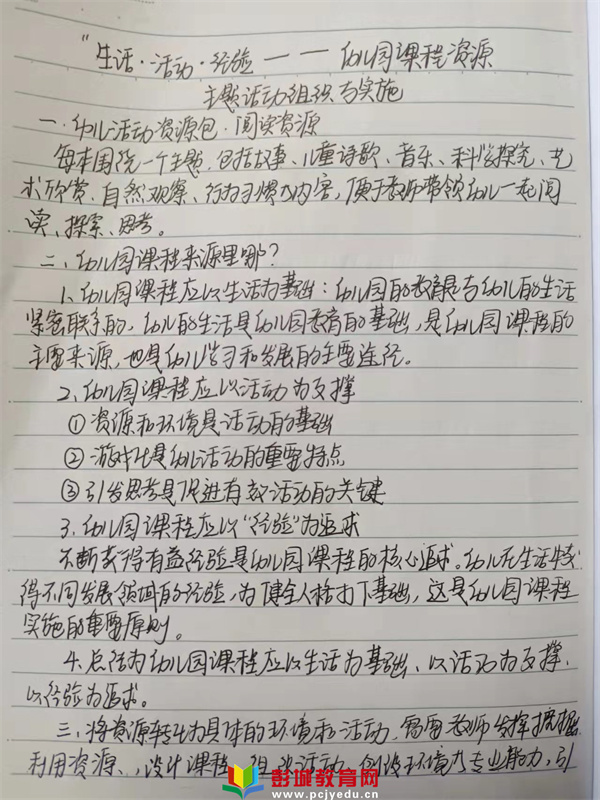 "生活·活动·经验——幼儿园课程资源
主题活动组织与实施
一.幼儿活动资源包.阅读资源
每本围绕一个主题,包括故事、儿童诗歌、音乐、科学探究、艺
术欣赏、自然观察、行为习惯为内容,便于教师带领幼儿一起阅
读、探索、思考。
二、幼儿园课程来源里哪?
1、幼儿园课程应以生活为基础:幼儿园的教育是与幼儿的生活
紧密联系的,幼儿的生活是幼儿园教育的基础,是幼儿园课程的
主要来源,也是幼儿学习和发展的主要途径。
2、幼儿园课程应以活动为支撑
①资源和环境是活动的基础
②游戏化是幼儿活动的重要特点
③引发思考是促进有效活动的关键
3.幼儿园课程应以"经验"为追求
不断获得有益经验是幼儿园课程的核心追求。幼儿在生活中
得不同发展领域的经验,为健全人格打下基础,这是幼儿园课程
实施的重要原则。
4.总结为幼儿园课程应以生活为基础、以活动为支撑,
以经验为追求。
三、将资源转化为具体的环境和活动,需要老师发挥挖掘
利用资源、,设计课程、组织活动、创设环境为专业能力,引
彭城教育网
www.pcjyedu.cn